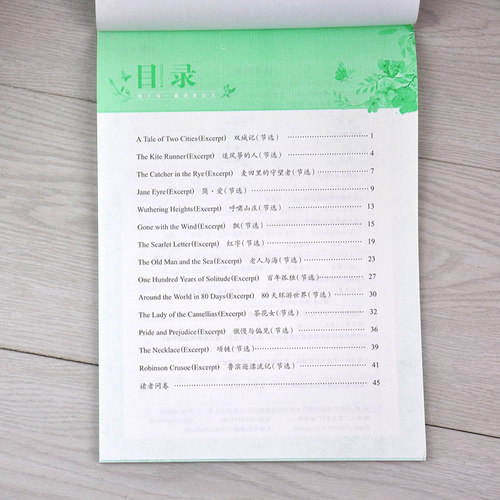 目录
A Tale of Two Cities(Excerpt) 双城记(节选) 1
The Kite Runner(Excerpt) 追风筝的人(节选) 4
The Catcher in the Rye(Excerpt) 麦田里的守望者(节选) 7
Jane Eyre(Excerpt) 简·爱(节选) 9
Wuthering Heights(Excerpt) 呼啸山庄(节选) 13
Gone with the Wind(Excerpt) 飘(节选) 15
The Scarlet Letter(Excerpt) 红字(节选) 19
The Old Man and the Sea(Excerpt) 老人与海(节选) 23
One Hundred Years of Solitude(Excerpt) 百年孤独(节选) 27
Around the World in 80 Days(Excerpt) 80天环游世界(节选) 30
The Lady of the Camellias(Excerpt) 茶花女(节选) 32
Pride and Prejudice(Excerpt) 傲慢与偏见(节选) 36
The Necklace(Excerpt) 项链(节选) 39
Robinson Crusoe(Excerpt) 鲁滨逊漂流记(节选) 41
读者问卷 45